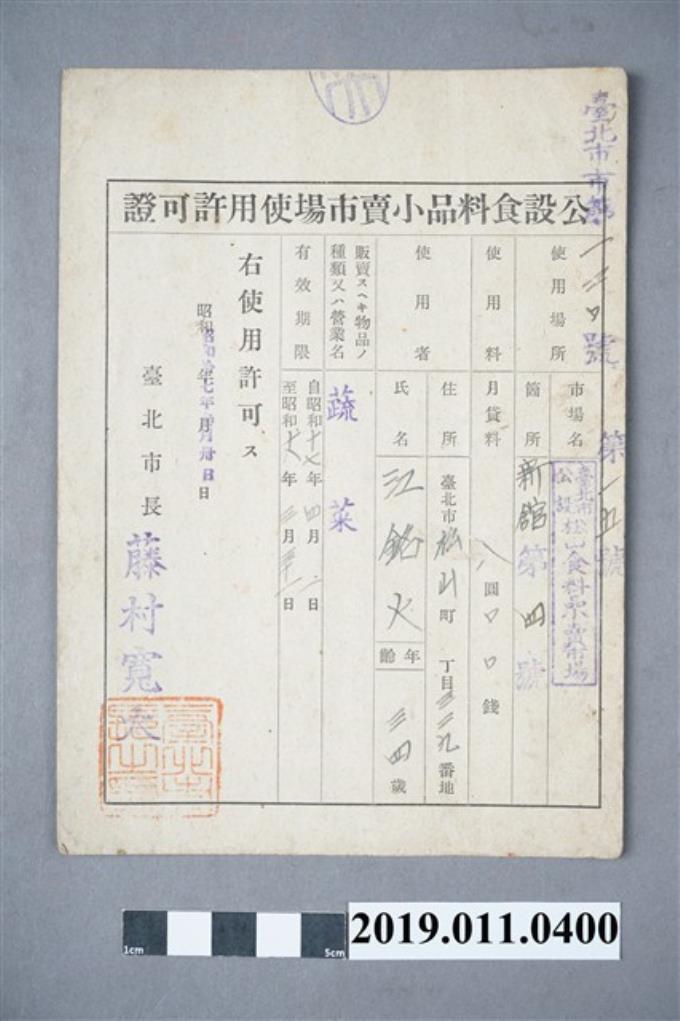 臺北市市第一三〇號
第一五號
公設食料品小賣市場使用許可證
使用場所
市場名
臺北市公設松山食料品小賣市場
箇所
新館第四號
使用料
月貸料
八圓〇〇錢
使用者
住所
臺北市松山町 丁目三三九番地
氏名
江銘火
年齡
三四歲
販賣スヘキ物品ノ種類又ハ營業名
蔬菜
有效期限
自昭和十七年四月一日
至昭和十八年三月三十一日
右使用許可ス
昭和 年 月 日
臺北市長
藤村寬太
2019.011.0400
1cm
5cm